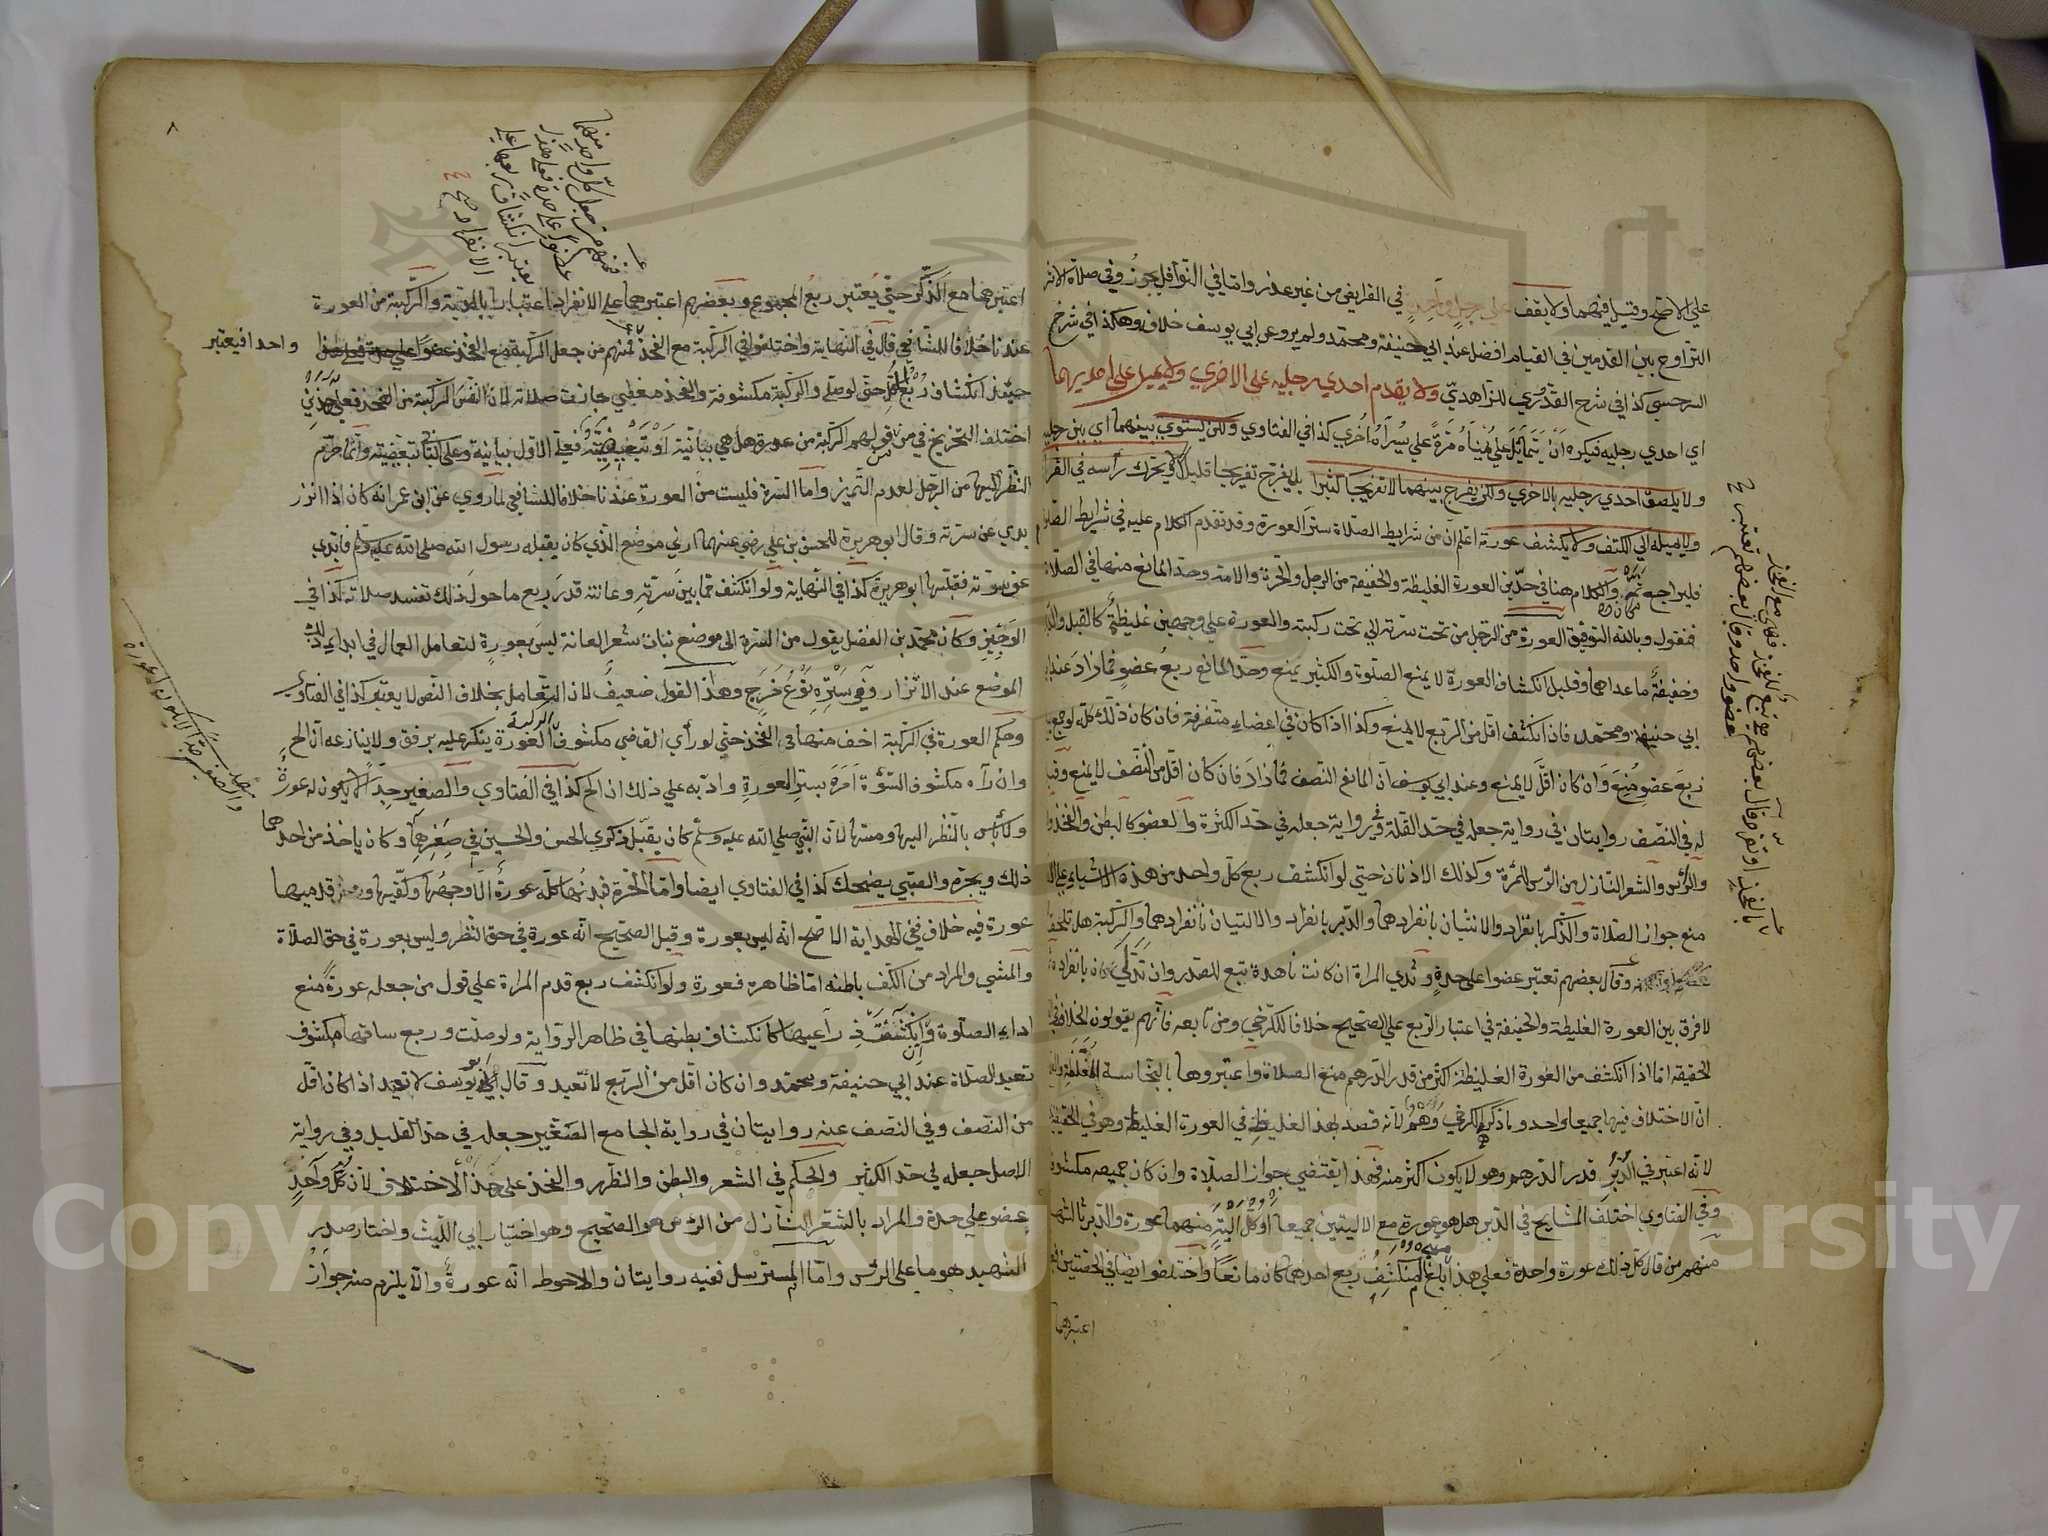 على الاصح وقيل فيهما ولا يقف على رجل واحد في الفرايض من غير عذر واما في النوافل يجوز وفي صلاة الاثر
التراوح بين القدمين في القيام افضل عند ابي حنيفة ومحمد ولم يرو عن ابي يوسف خلافه وهكذا في شرح
السرخسي كذا في شرح القدوري للزاهدي ولا يقدم احدي رجليه على الاخرى ولا يميل على احديهما
اي احدي رجليه فيكره ان يتمايل على يمناه مرة على يسراه اخري كذا في الفتاوي ولكن يستوي بينهما اي بين رجليه
ولا يلصق احدي رجليه بالاخري ولكن يفرج بينهما لا تفريجا كثيرا بل يفرج تفريجا قليلا ولا يحرك رأسه في
ولا يميله الي الكتف ولا يكشف عورته اعلم ان من شرايط الصلاة ستر العورة وقد تقدم الكلام عليه في شرايط
فليراجع ثمه والكلام هنا في حد بين العورة الغليظة والخفيفة من الرجل والحرة والامة وحد المانع منها في الصلاة
فنقول وبالله التوفيق العورة من الرجل من تحت سرته الي تحت ركبته والعورة على وجهين غليظة كالقبل والدبر
وخفيفة ما عداهما وقليل انكشاف العورة لا يمنع الصلوة والكثير يمنع وحد المانع ربع عضو فما زاد عند
ابي حنيفة ومحمد فان انكشف اقل من الربع لا يمنع وكذا اذا كان في اعضاء متفرقة فان كان ذلك كله لو جمع
ربع عضو منع وان كان اقل لا يمنع وعند ابي يوسف ان المانع النصف فما زاد فان كان اقل من النصف لا يمنع
له في النصف روايتان في رواية جعله في حد القلة وفي رواية جعله في حد الكثرة والعضو كالبطن والفخذ
والرأس والشعر النازل من الرأس للمرة وكذلك الاذنان حتي لو انكشف ربع كل واحد من هذه الاشياء
منع جواز الصلاة والذكر بانفراد والانثيان بانفرادهما والدبر بانفراد والاليتان بانفرادهما والركبة هل تلحق
وقال بعضهم تعتبر عضوا على حدة وثدي المراة ان كانت ناهدة تبع للصدر وان تدلي كان بانفراده
لا فرق بين العورة الغليظة والخفيفة في اعتبار الربع على الصحيح خلافا للكرخي ومن تابعه فانهم يقولون
الخفيفة اما اذا انكشف من العورة الغليظة اكثر من قدر الدرهم منع الصلاة واعتبروها بالنجاسة المغلظة
ان الاختلاف فيها جميعا واحد وما ذكره الكرخي وهم لانه قصد بهذا الغليظ في العورة الغليظة وهو في الخفيفة
لانه اعتبر في الدبر قدر الدرهم وهو لا يكون اكثر منه فهذا يقتضي جواز الصلاة وان كان جميعه مكشوفا
وفي الفتاوي اختلف المشايخ في الدبر هل هو عورة مع الاليتين جميعا او كل الية منهما عورة والدبر ثالثها
منهم من قال كل ذلك عورة واحدة فعلى هذا بلغ المنكشف ربع احدهما كان مانعا واختلفوا ايضا في الخصيتين
اعتبرهما
بالفخذ او تعتبر قال بعضهم هي تبع للفخذ فهي مع الفخذ
عضو واحد وقال بعضهم تعتبر
٨
اعتبرهما مع الذكر حتي يعتبر ربع المجموع وبعضهم اعتبرهما على الانفراد اعتبارا بالدية والركبة من العورة
عندنا خلافا للشافعي قال في النهاية واختلفوا في الركبة مع الفخذ فمنهم من جعل الركبة مع الفخذ عضوا واحدا فيعتبر
حينئذ انكشاف ربع الكل حتى لو صلى والركبة مكشوفة والفخذ مغطي جازت صلاته لان نفس الركبة من الفخذ فعلى هذين
اختلف التخريج في من قولهم الركبة من عورة هل هي بيانية او تبعيضية فعلى الاول بيانية وعلى الثاني تبعيضية وانما حرم
النظر اليها من الرجل لعدم التميز واما السرة فليست من العورة عندنا خلافا للشافعي لما روي عن ابن عمر انه كان اذا اتزر
بدي عن سرته وقال ابو هريرة للحسن بن علي رضي عنهما ارني موضع الذي كان يقبله رسول الله صلى الله عليه وسلم فابدي
عن سرته فقبلها ابو هريرة كذا في النهاية ولو انكشف فما بين سرته وعانته قدر ربع ما حول ذلك تفسد صلاته كذا في
الوجيز وكان محمد بن الفضل يقول من السرة الى موضع نبات شعر العانة ليس بعورة لتعامل العمال في ابداء ذلك
الموضع عند الاتزار وفي ستره نوع حرج وهذا القول ضعيف لان التعامل بخلاف النص لا يعتبر كذا في الفتاوي
وحكم العورة في الركبة اخف منها في الفخذ حتي لو رأي القاضي مكشوف العورة الركبة ينكر عليه برفق ولا ينازعه ان الح
وان رآه مكشوف السوءة امره بستر العورة وادبه على ذلك ان الح كذا في الفتاوي والصغير جدا لا يكون له عورة
ولا بأس بالنظر اليها ومسها لان النبي صلى الله عليه وسلم كان يقبل ذكري الحسن والحسين في صغرهما وكان ياخذ من احدهما
ذلك ويجره والصبي يضحك كذا في الفتاوي ايضا واما الحرة فبدنها كله عورة الا وجهها وكفيها وقدميها
عورة فيه خلاف ففي الهداية الاصح انه ليس بعورة وقيل الصحيح انه عورة في حق النظر وليس بعورة في حق الصلاة
والمشي والمراد من الكف باطنه اما ظاهره فعورة ولو انكشف ربع قدم المراة على قول من جعله عورة منع
اداء الصلوة وانكشاف ذراعيها كانكشاف بطنها في ظاهر الرواية ولو صلت وربع ساقها مكشوف
تعيد الصلاة عند ابي حنيفة ومحمد وان كان اقل من الربع لا تعيد وقال ابو يوسف لا تعيد اذا كان اقل
من النصف وفي النصف عنه روايتان في رواية الجامع الصغير جعله في حد القليل وفي رواية
الاصل جعله في حد الكثير والحكم في الشعر والبطن والظهر والفخذ على هذا الاختلاف لان كل واحد
عضو على حدة والمراد بالشعر النازل من الرأس هو الصحيح وهو اختيار ابي الليث واختار صدر
الشهيد هو ما على الرأس واما المسترسل ففيه روايتان والاحوط انه عورة والا يلزم منه جواز
فمنهم من جعل كل واحد منهما
عضوا على حدة فعلى هذا
يعتبر انكشاف ربعها على
الانفراد صح
والصغير جدا لا يكون له عورة
Copyright © King Saud University